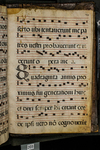 serto ubi tentaverunt me pa
tres vestri probaverunt
opera mea
Quadraginta annis pro
ximus fui generationi huic
et dixi semper hi errant cor
de ipsi vero non cognoverunt